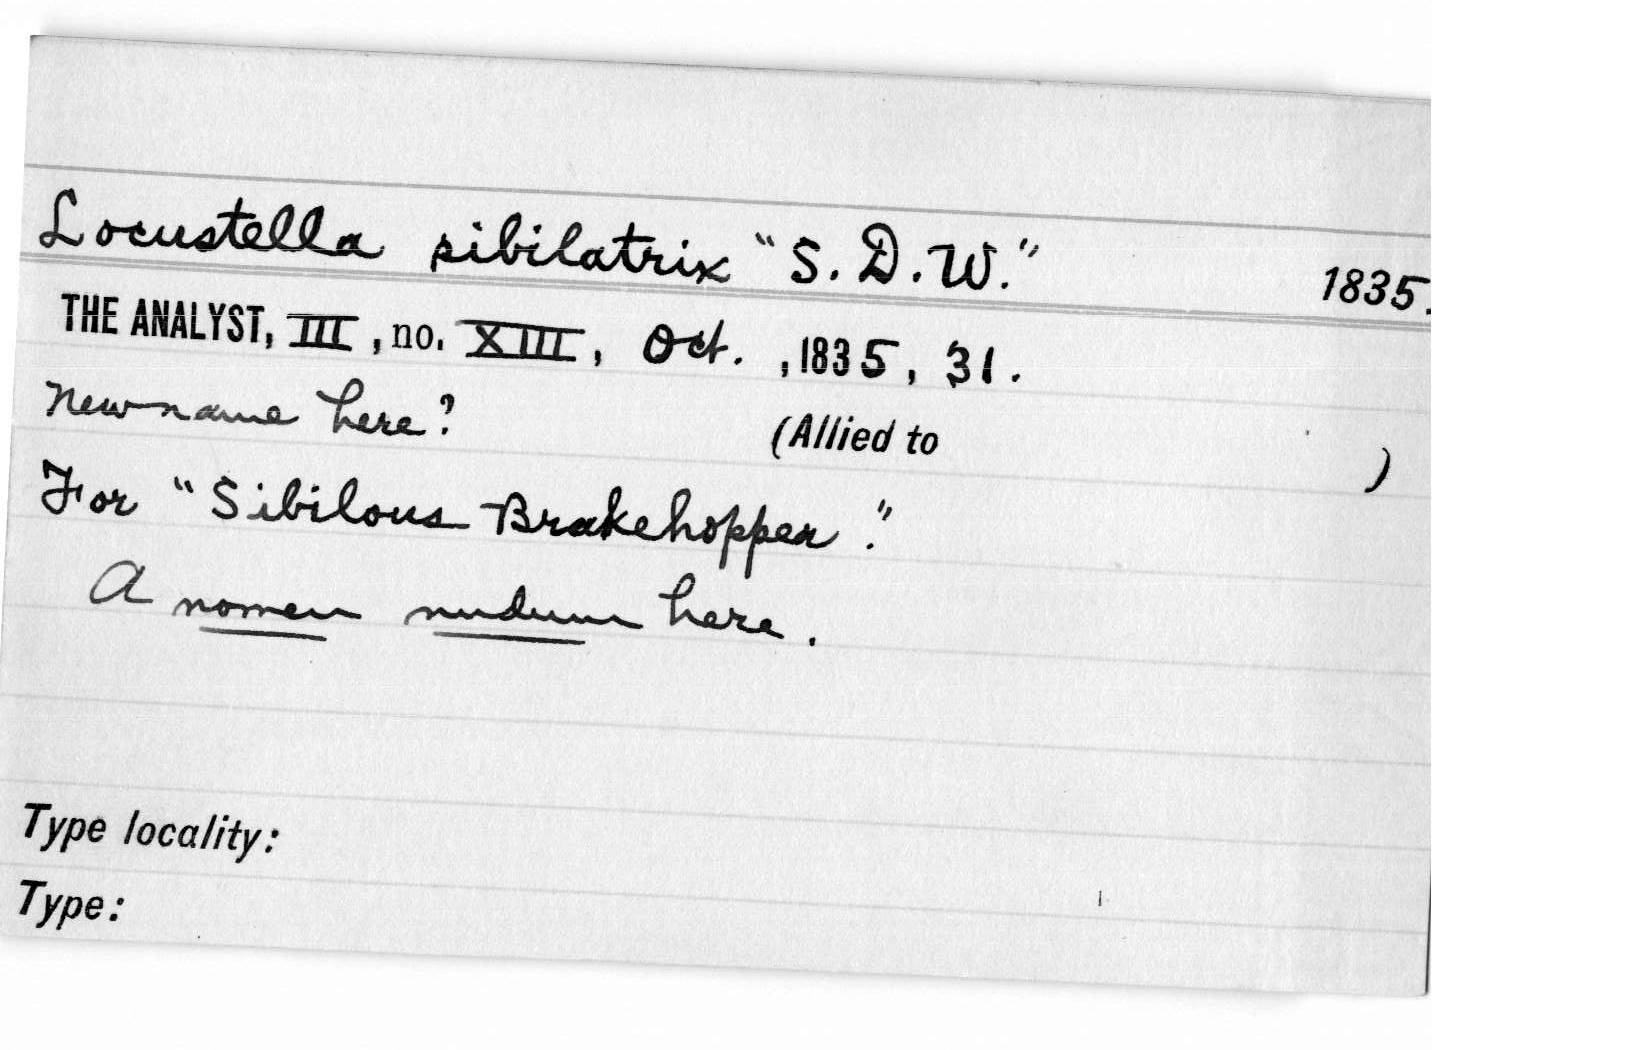 Locustella sibilatrix "S. D. W." 1835.
THE ANALYST, III, no. XIII, Oct., 1835, 31.
New name here? (Allied to )
For "Sibilous Brakehopper."
A nomen nudum here.
Type locality:
Type: